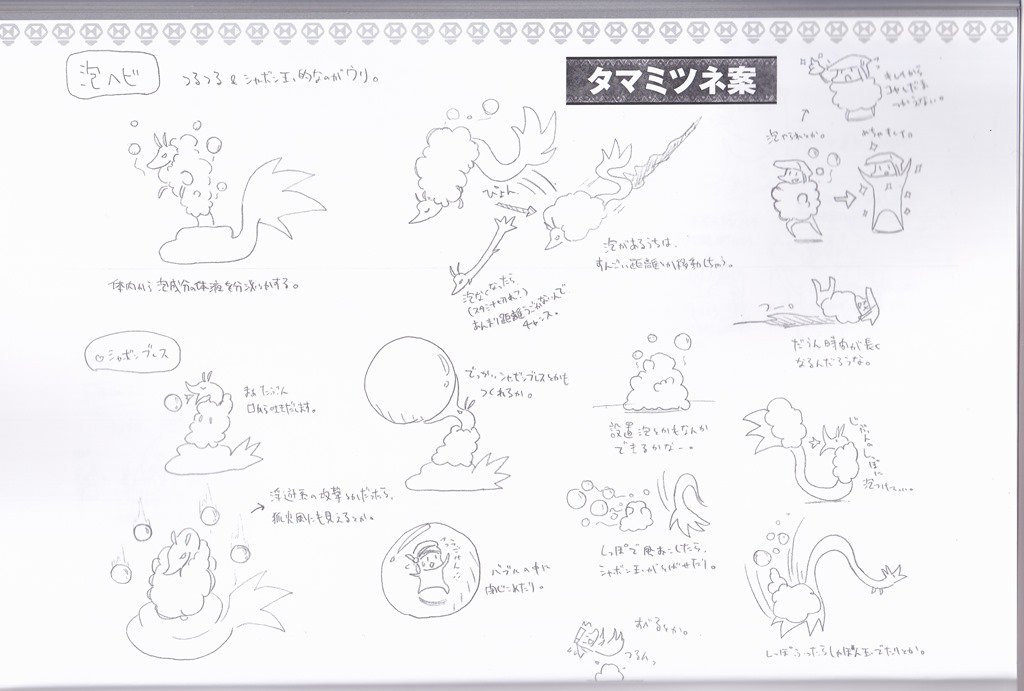 泡ヘビ
つるつる & シャボン玉的なのがウリ。
タマミツネ案
キレイだから
つかえない。
泡やられとか。
めちゃキレイ。
ぴょん
体内から泡成分の体液を分泌とかする。
泡なくなったら
(スタミナ切れ?)
あんまり距離うごかないんで
チャンス。
泡があるうちは、
すんごい距離とか移動しちゃう。
つー。
だうん時間が長く
なるんだろうな。
シャボンブレス
まぁたぶん
口から吐きだします。
でっかいシャボンブレスとかも
つくれるか。
設置泡とかもなんか
できるかなー。
じぶんの
しっぽに
泡つけてぃ…
→ 浮遊系の攻撃とかだったら、
狐火風にも見えるとか。
バブルの中に
閉じこめたり。
しっぽで風おこしたら、
シャボン玉がとばせたり。
すべるとか。
つるんっ
しっぽふったらしゃぼん玉でたりとか。